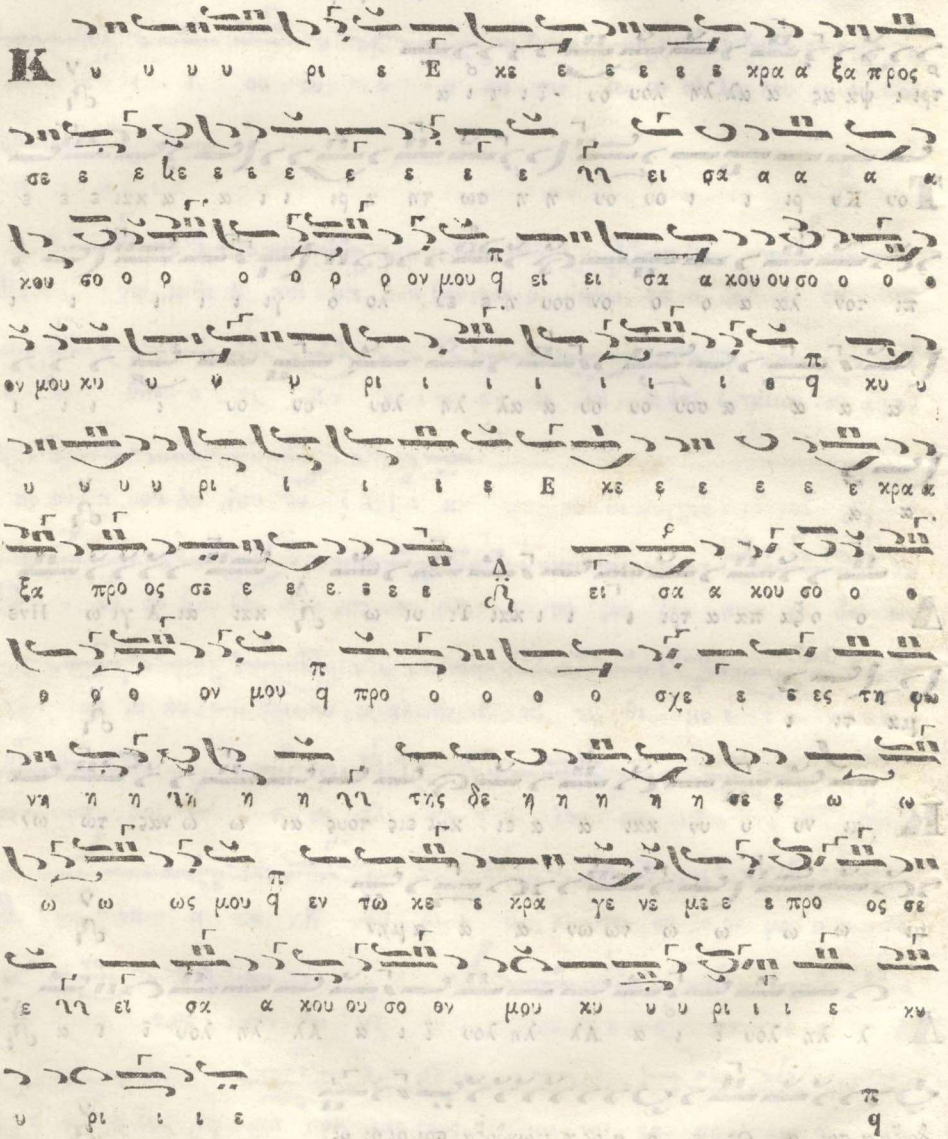 Κ υ υ υ υ ρι ε Ε κε ε ε ε ε ε κρα α ξα προς
σε ε ε κε ε ε ε ε ε ε ε ει σα α α α α
κου σο ο ο ο ο ο ο ον μου π q ει ει σα α κου ου σο ο ο ο
ον μου κυ υ υ υ ρι ι ι ι ι ι ι ε π q κυ υ
υ υ υ υ ρι ι ι ι ε Ε κε ε ε ε ε ε κρα α
ξα προ ος σε ε ε ε ε ε ε Δ ει σα α α κου σο ο ο
ο ο ο ον μου π q προ ο ο ο ο σχε ε ε ες τη φω
νη η η η η η της δε η η η η η σε ε ω ω
ω ω ως μου π q εν τω κε ε κρα γε νε με ε ε προ ος σε
ε ει σα α κου ου σο ον μου κυ υ υ ρι ι ι ε κυ
υ ρι ι ι ε π q